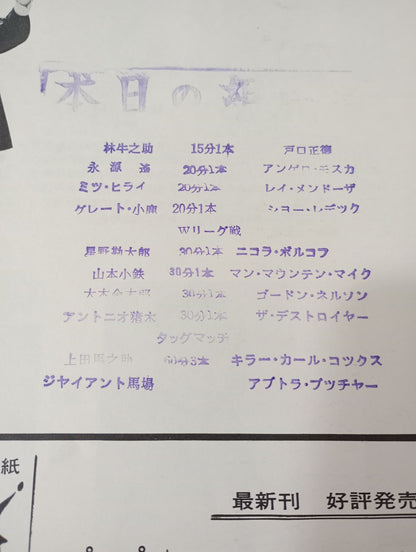 本日の
林牛之助 15分1本 戸口正徳
永源遙 20分1本 アンゲロ・モスカ
ミツ・ヒライ 20分1本 レイ・メンドーザ
グレート・小鹿 20分1本
Wリーグ戦
星野勘太郎 30分1本 ニコラ・ボルコフ
山本小鉄 30分1本 マン・マウンテン・マイク
大木金太郎 30分1本 ゴードン・ネルソン
アントニオ猪木 30分1本 ザ・デストロイヤー
タッグマッチ
上田馬之助 60分3本 キラー・カール・コックス
ジャイアント馬場 アブトラ・ブッチャー
紙
最新刊 好評発売